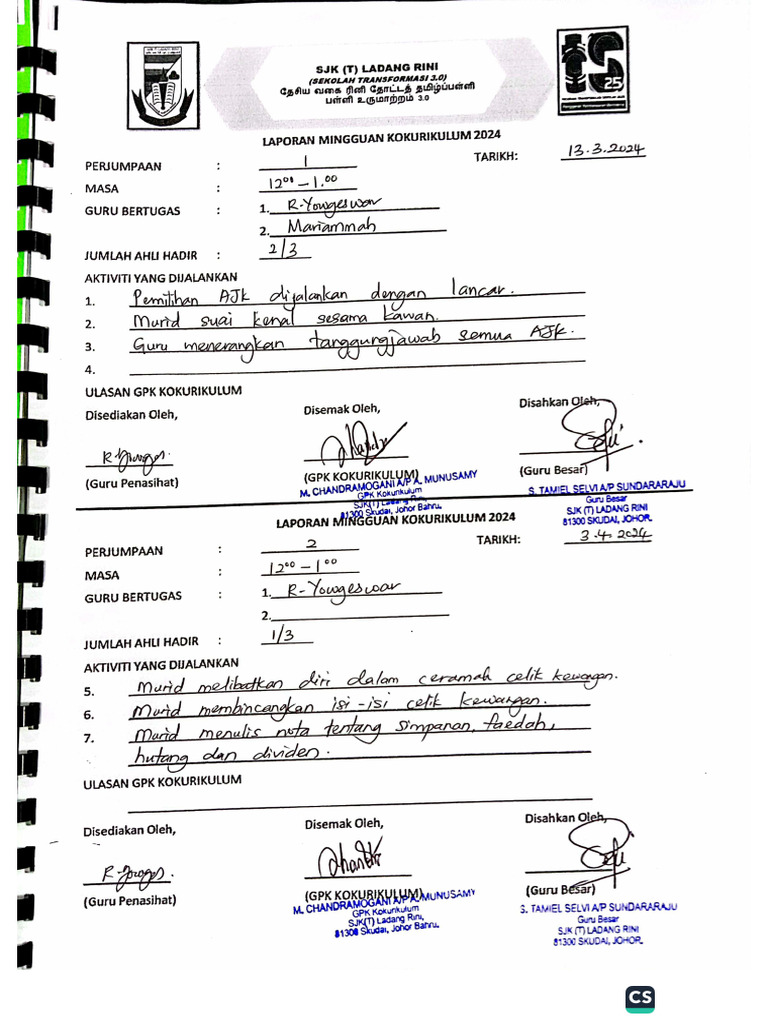 SJK (T) LADANG RINI
(SEKOLAH TRANSFORMASI 3.0)
தேசிய வகை ரினி தோட்டத் தமிழ்ப்பள்ளி
பள்ளி உருமாற்றம் 3.0
iS 25
LAPORAN MINGGUAN KOKURIKULUM 2024
PERJUMPAAN : 1 TARIKH: 13.3.2024
MASA : 12⁰⁰ – 1.⁰⁰
GURU BERTUGAS : 1. R-Yowgeswar
2. Mariammah
JUMLAH AHLI HADIR : 2/3
AKTIVITI YANG DIJALANKAN
1. Pemilihan AJK dijalankan dengan lancar.
2. Murid suai kenal sesama kawan.
3. Guru menerangkan tanggungjawab semua AJK.
4.
ULASAN GPK KOKURIKULUM
Disediakan Oleh, Disemak Oleh, Disahkan Oleh,
(Guru Penasihat) (GPK KOKURIKULUM) (Guru Besar)
M. CHANDRAMOGANI A/P A. MUNUSAMY S. TAMIEL SELVI A/P SUNDARARAJU
GPK Kokurikulum Guru Besar
SJK(T) Ladang Rini, SJK (T) LADANG RINI
81300 Skudai, Johor Bahru. 81300 SKUDAI, JOHOR.
LAPORAN MINGGUAN KOKURIKULUM 2024
PERJUMPAAN : 2 TARIKH: 3.4.2024
MASA : 12⁰⁰ – 1⁰⁰
GURU BERTUGAS : 1. R-Yowgeswar
2.
JUMLAH AHLI HADIR : 1/3
AKTIVITI YANG DIJALANKAN
5. Murid melibatkan diri dalam ceramah celik kewangan.
6. Murid membincangkan isi-isi celik kewangan.
7. Murid menulis nota tentang simpanan, faedah,
hutang dan dividen.
ULASAN GPK KOKURIKULUM
Disediakan Oleh, Disemak Oleh, Disahkan Oleh,
(Guru Penasihat) (GPK KOKURIKULUM) (Guru Besar)
M. CHANDRAMOGANI A/P A. MUNUSAMY S. TAMIEL SELVI A/P SUNDARARAJU
GPK Kokurikulum Guru Besar
SJK(T) Ladang Rini, SJK (T) LADANG RINI
81300 Skudai, Johor Bahru. 81300 SKUDAI, JOHOR.
CS